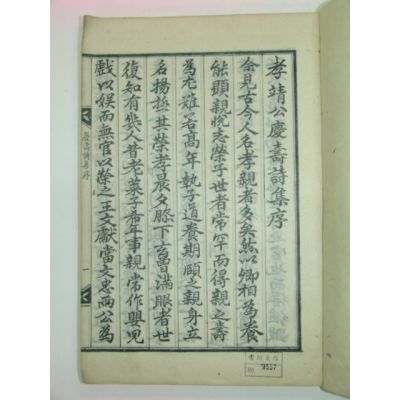 孝靖公慶壽詩集序
余見古今人名孝親者多矣然以卿相為養
能顯親悅志榮予世者常罕而得親之壽
為尤難若高年執子道養期頤之親身立
名揚極其榮孝晨夕膝下言曾滿眼者世
復知有幾人昔老菜子希年事親常作嬰兒
戲以娛而無官以榮之王文獻當文忠兩公為
慶壽詩集序
一
9557